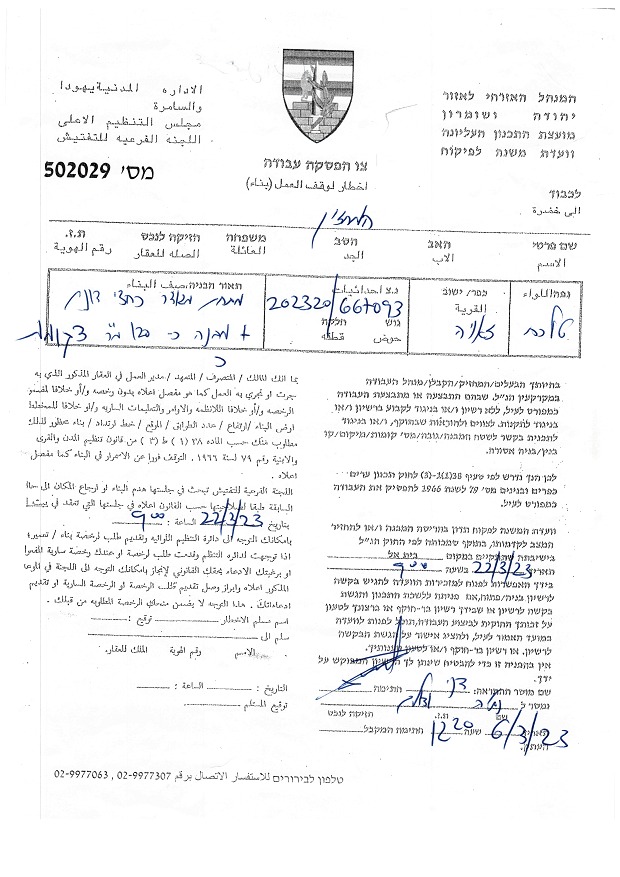 המנהל האזרחי לאזור
יהודה ושומרון
מועצת התכנון העליונה
וועדת משנה לפיקוח
الاداره المدنية يهودا
والسامرة
مجلس التنظيم الاعلى
اللجنه الفرعيه للتفتيش
צו הפסקה עבודה
اخطار لوقف العمل (بناء)
מס' 502029
לכבוד
الى حضرة
שם פרטי האב הסב משפחה חזיקה לנכס ת.ז.
الاسم الاب الجد العائلة الصله للعقار رقم الهوية
נפה/אللواء כפר/ ישוב القرية נ.צ احداثيات תאור הבניה/صيف البناء
גוש חלקה
حوض قطعه
202320/667093
בהיותך הבעלים/המחזיק/הקבלן/מנהל העבודה
במקרקעין הנ"ל שבהם התבצעה או מתבצעת העבודה
כמפורט לעיל, ללא רשיון ו/או בניגוד לקבוע ברישיון ו/או
בניגוד לתקנות, לצווים ולהוראות שבתוקף, ו/או בניגוד
לתכנית בקשר לשטח המבנה/גובה/מס' קומות/מיקום/קו
בנין/בניה אסורה.
לכן הנך נדרש לפי סעיף 38(1)-(3) לחוק תכנון ערים
כפרים ובנינים מס' 79 לשנת 1966 להפסיק את העבודה
כמפורט לעיל.
וועדה המשנה לפקוח תדון בהריסת המבנה ו/או להחזיר
המצב לקדמותו, בתוקף סמכותה לפי החוק הנ"ל
בישיבתה שתתקיים במקום בית אל
תאריך 22/3/23 בשעה 9:00
בידך האפשרות לפנות למזכירות הוועדה להגיש בקשה
לרישיון בניה/פתוח, אם פניתה ללשכת התכנון והגשת
בקשה לרשיון או שבידך רשיון בר-תוקף או ברצונך לטעון
על זכותך החוקית לביצוע העבודה, תוכל לפנות לוועדה
במועד האמור לעיל, ולהציג אישור על הגשת הבקשה
לרישיון, או רשיון בר-תוקף ו/או לטעון טענותיך.
אין בהפניה זו כדי להבטיח שינתן לך הרשיון המבוקש על
ידך.
שם מוסר ההתראה: חתימה
נמסר ל
שם ת.ז. חזיקה לנכס
תאריך 6/3/23 שעה 1220 חתימת המקבל
העתק:
بما انك المالك / المتصرف / المتعهد / مدير العمل في العقار المذكور اللذي به
جرت او تجري به العمل كما هو مفصل اعلاه بدون رخصه و/او خلافا
الرخصه و/او خلافا للانظمه والاوامر والتعليمات الساريه و/او خلافا للمخطط
ارض البناء/ارتفاع/ عدد الطوابق / الموقع / خط ارتداد / بناء محظور لذلك
مطلوب منك حسب الماده ٣٨ (١) ط (٣) من قانون تنظيم المدن والقرى
والابنية رقم ٧٩ لسنة ١٩٦٦ . التوقف فورا عن الاستمرار في البناء كما مفصل
اعلاه .
اللجنة الفرعية للتفتيش تبحث في جلستها هدم البناء او ارجاع المكان الى
السابقة طبقا لصلاحيتها حسب القانون اعلاه في جلستها التي تنعقد في
بتاريخ 22/3/23 الساعة : 9:00
بامكانك التوجه الى دائرة التنظيم اللوائيه وتقديم طلب لرخصة بناء / تعمير؛
اذا توجهت لدائره التنظيم وقدمت طلب لرخصة او عندك رخصة سارية
او برغبتك الادعاء بحقك القانوني لإنجاز بامكانك التوجه الى اللجنة في
المذكور اعلاه وابراز وصل تقديم طلب الرخصة او الرخصة السارية او تقديم
ادعاءاتك . هذا التوجه لا يضمن منحك الرخصة المطلوبه من قبلك .
اسم مسلم الاخطار توقيع :
سلم الى
الاسم رقم الهوية الملك للعقار
التاريخ : الساعة :
توقيع المستلم
טלפון לבירורים للاستفسار الاتصال برقم 02-9977307 , 02-9977063